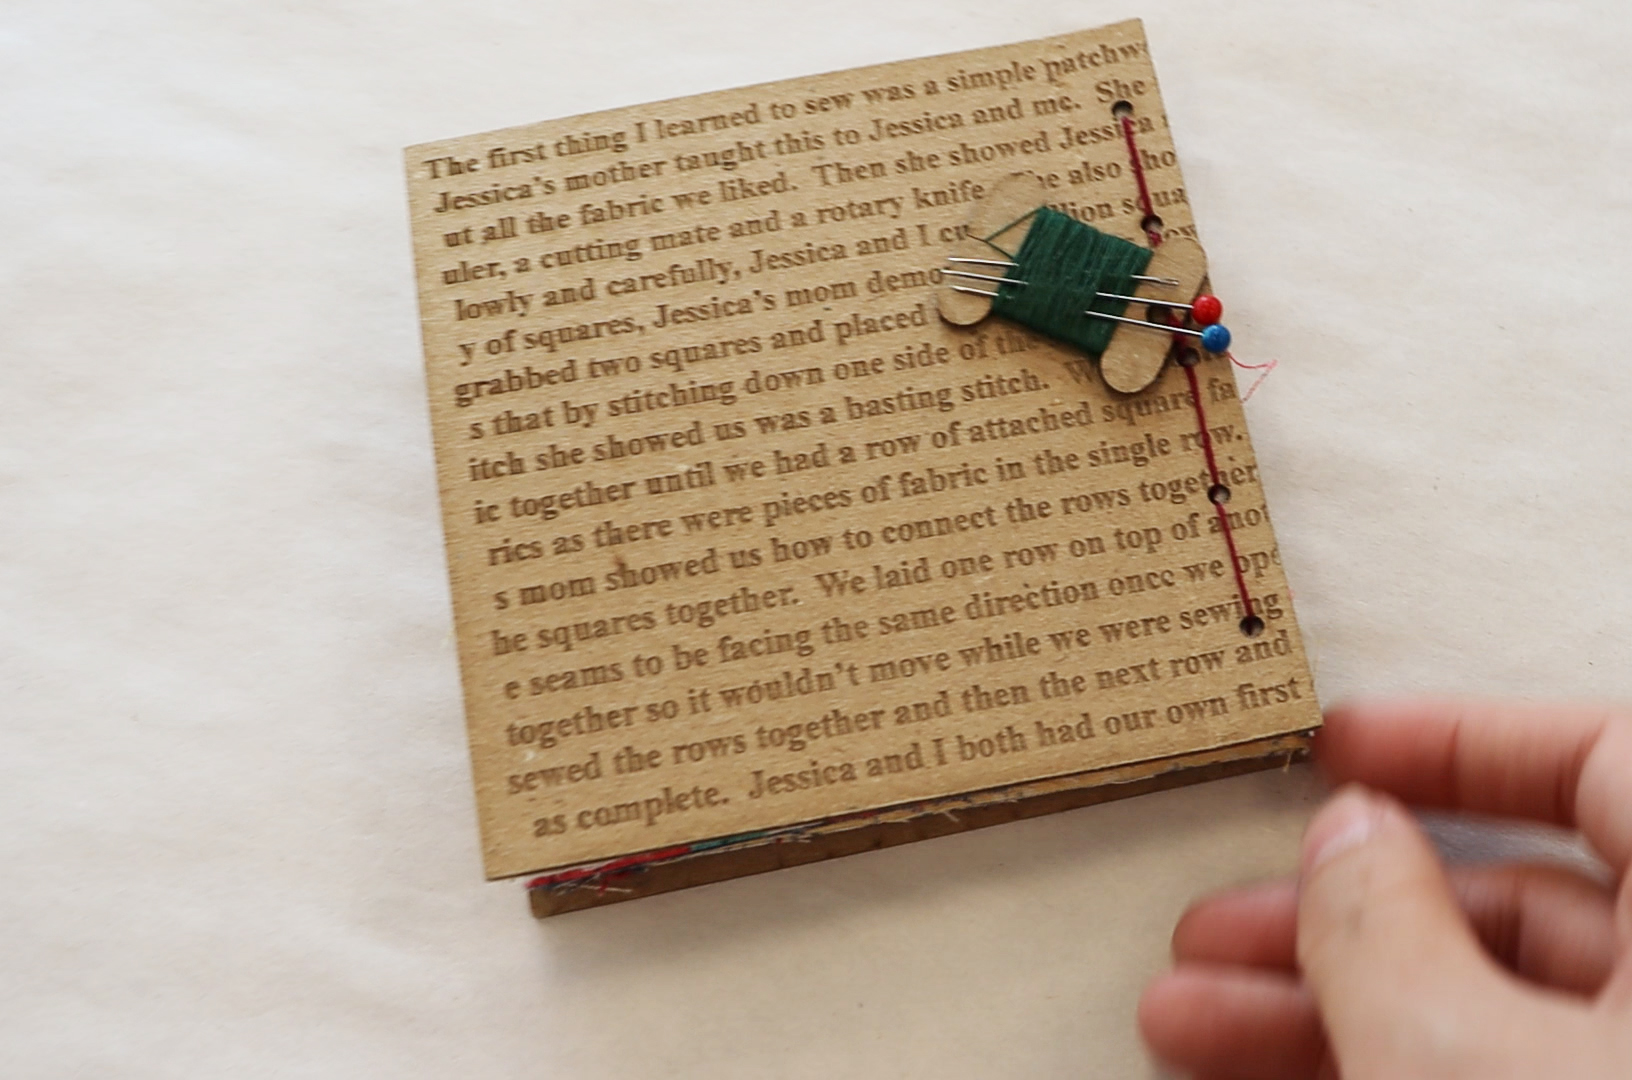 The first thing I learned to sew was a simple patchw
Jessica's mother taught this to Jessica and me. She
ut all the fabric we liked. Then she showed Jessica
uler, a cutting mate and a rotary knife. also sho
lowly and carefully, Jessica and I cu llion squa
y of squares, Jessica's mom demo
grabbed two squares and placed
s that by stitching down one side of the
itch she showed us was a basting stitch.
ic together until we had a row of attached square fa
rics as there were pieces of fabric in the single row.
s mom showed us how to connect the rows together
he squares together. We laid one row on top of anot
e seams to be facing the same direction once we ope
together so it wouldn't move while we were sewing
sewed the rows together and then the next row and
as complete. Jessica and I both had our own first